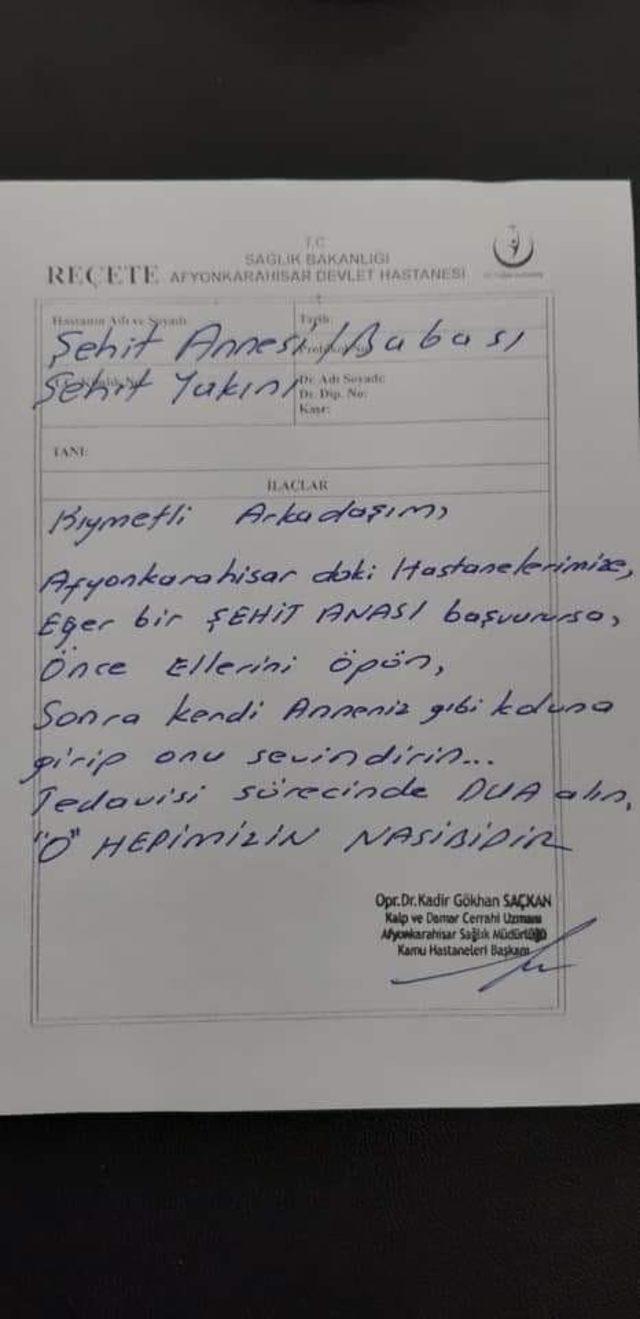 T.C
SAĞLIK BAKANLIĞI
REÇETE AFYONKARAHİSAR DEVLET HASTANESİ
Hastanın Adı ve Soyadı
Tarih
Şehit Annesi/Babası
Protokol No
Şehit Yakını
Dr. Adı Soyadı:
Dr. Dip. No:
Kaşe:
TANI:
İLAÇLAR
Kıymetli Arkadaşım,
Afyonkarahisar daki Hastanelerimize,
Eğer bir ŞEHİT ANASI başvurursa,
Önce Ellerini öpün,
Sonra kendi Anneniz gibi koluna
girip onu sevindirin...
Tedavisi sürecinde DUA alın,
"O" HEPİMİZİN NASİBİDİR
Opr.Dr.Kadir Gökhan SAÇKAN
Kalp ve Damar Cerrahi Uzmanı
Afyonkarahisar Sağlık Müdürlüğü
Kamu Hastaneleri Başkanı